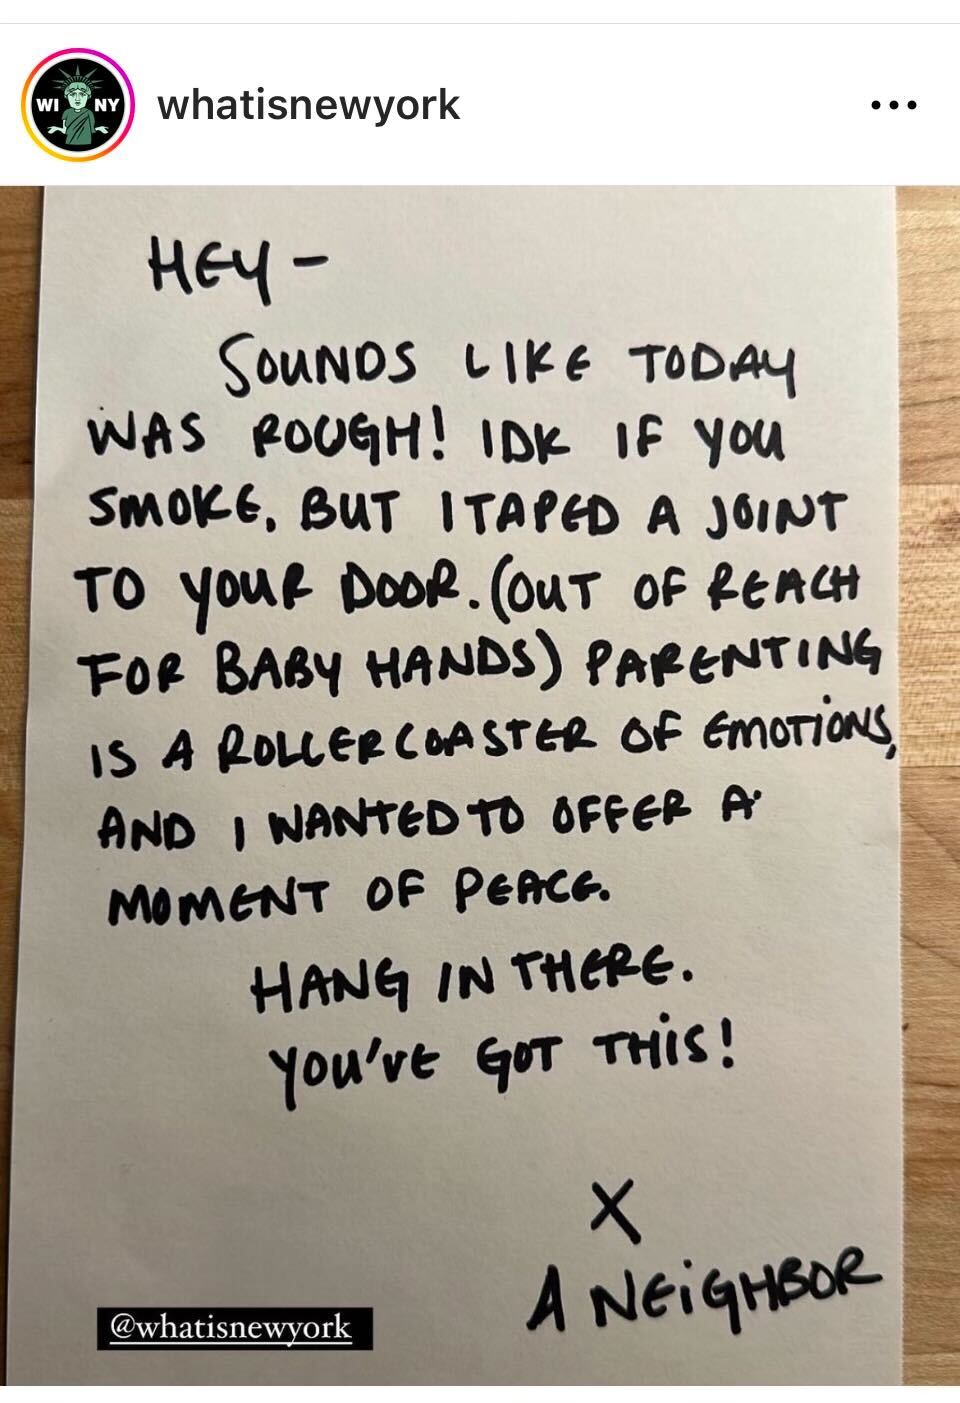 WI NY
whatisnewyork
HEY-
SOUNDS LIKE TODAY
WAS ROUGH! IDK IF YOU
SMOKE, BUT I TAPED A JOINT
TO YOUR DOOR. (OUT OF REACH
FOR BABY HANDS) PARENTING
IS A ROLLERCOASTER OF EMOTIONS,
AND I WANTED TO OFFER A
MOMENT OF PEACE.
HANG IN THERE.
YOU'VE GOT THIS!
X
A NEIGHBOR
@whatisnewyork